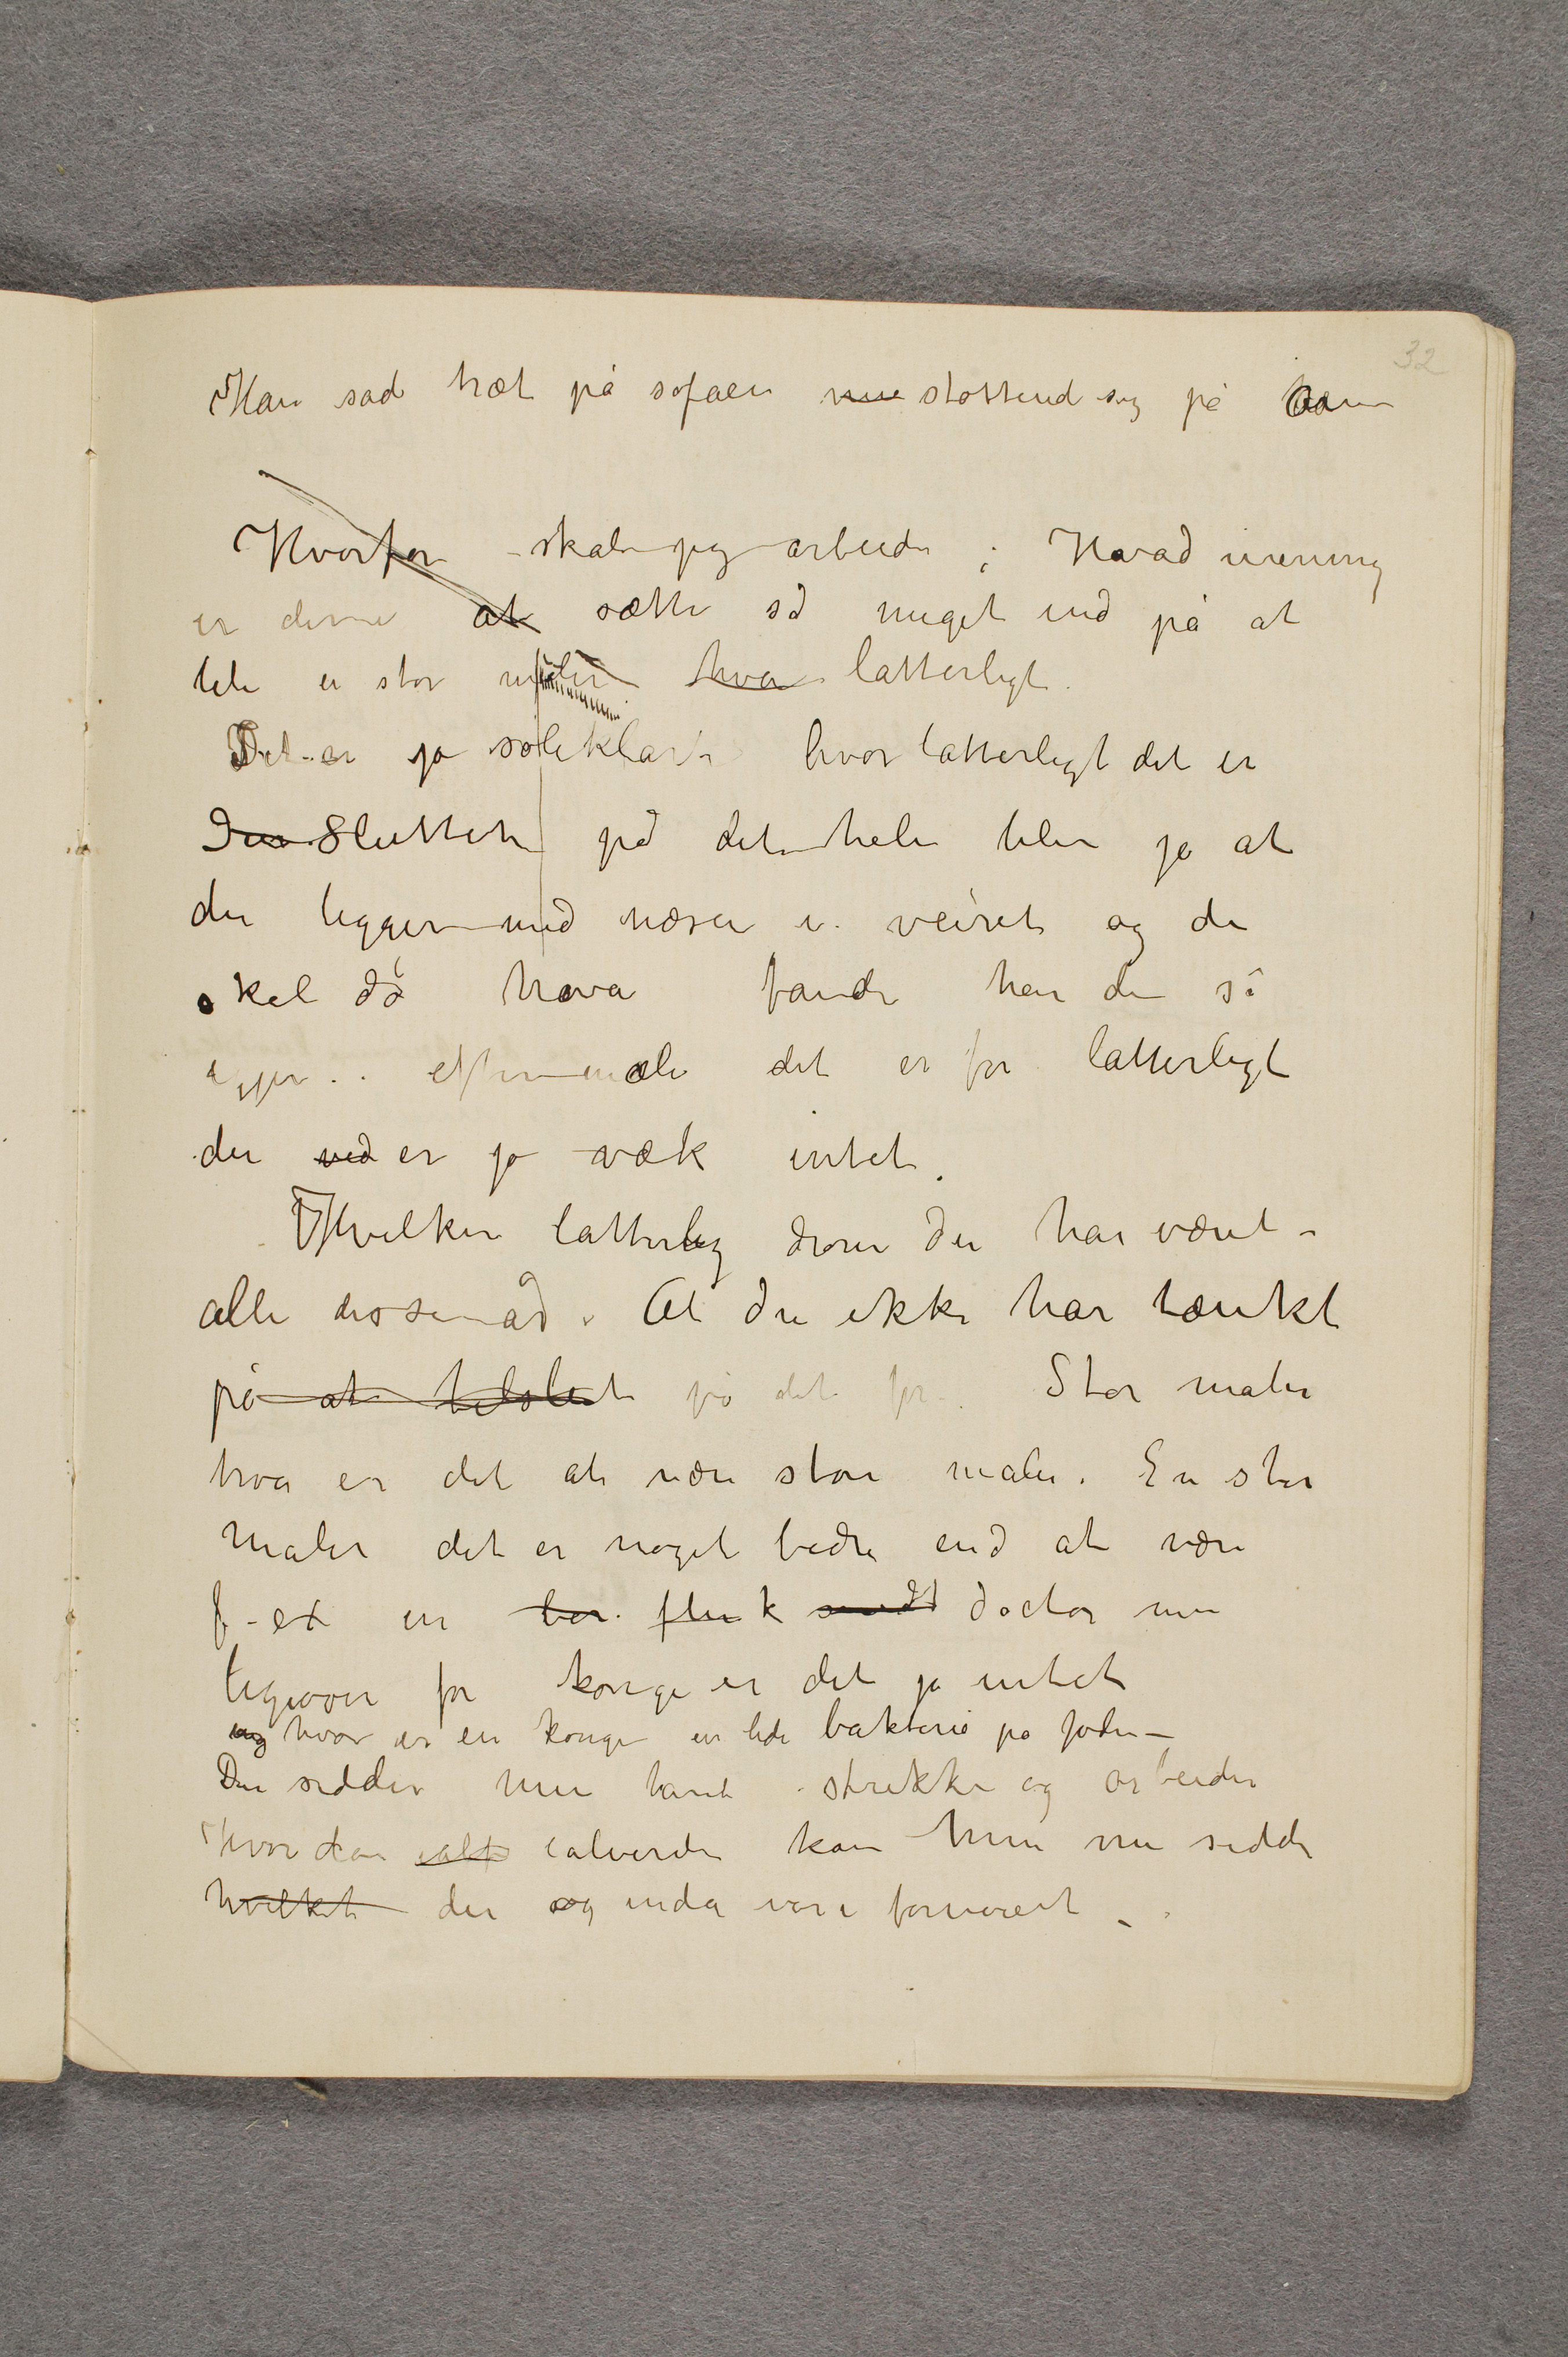 32
Han sad træt på sofaen nu støttend sig på
Hvorfor skal jeg arbeide ; Havad mening
er denne at sætte så meget ind på at
bli en stor maler hva latterligt.
Det er jo soleklart hvor latterligt det er
Den Slutten på det hele blir jo at
du ligger med næsen i veiret og du
skal dø hava fande har du så
igjen . . eftermæle det er for latterligt
du ved er jo væk intet.
Hvilken latterlig drøm du har været –
alle disse år . At du ikke har tænkt
på at tilslut på det før. Stor maler
hva er det at være stor maler. En stor
maler det er noget bedre end at være
f-ex en flink doctor men
ligeover for konge er det jo intet
og hvor er en konge en lide bakterie på joden –
Der sidder hun tante strikker og arbeider
Hvordan ialt ialverden kan hun nu sidde
hvilket der og enda være fornøiet –